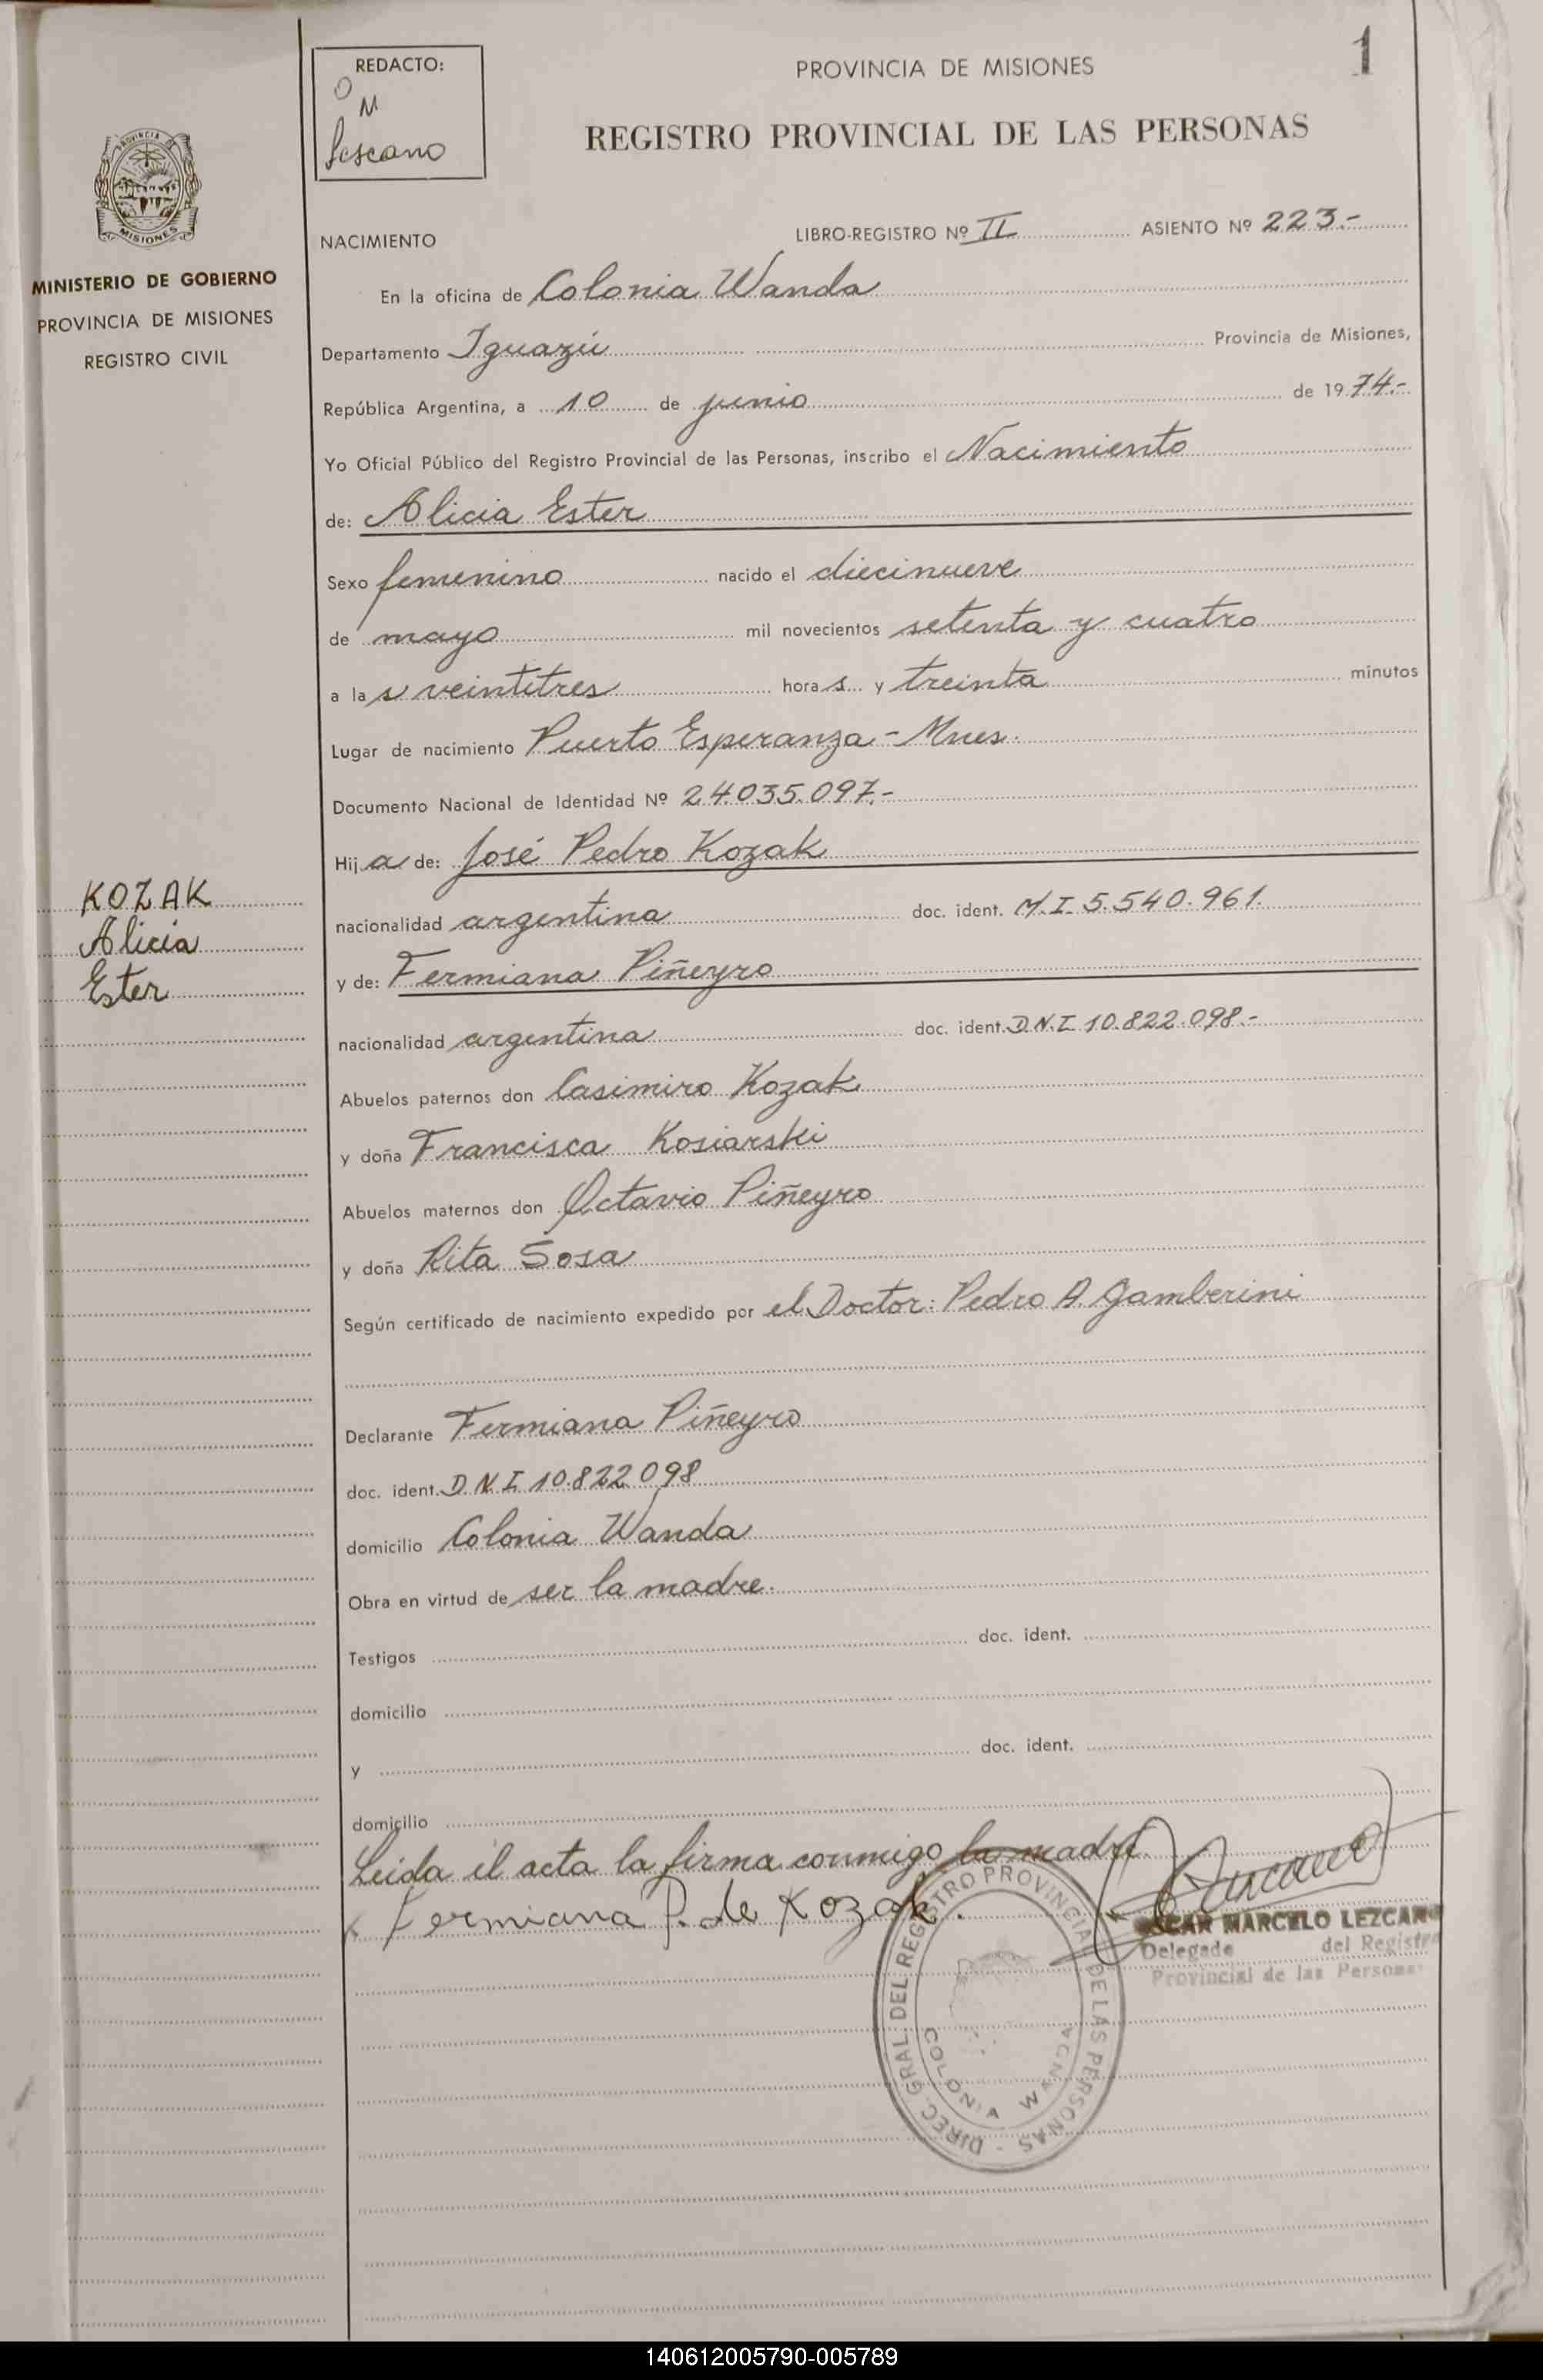 1
REDACTO:
O
M
Lescano
PROVINCIA DE MISIONES
REGISTRO PROVINCIAL DE LAS PERSONAS
PROVINCIA
MISIONES
MINISTERIO DE GOBIERNO
PROVINCIA DE MISIONES
REGISTRO CIVIL
KOZAK
Alicia
Ester
NACIMIENTO LIBRO-REGISTRO Nº II ASIENTO Nº 223.-
En la oficina de Colonia Wanda
Departamento Iguazú Provincia de Misiones,
República Argentina, a 10 de junio de 1974.-
Yo Oficial Público del Registro Provincial de las Personas, inscribo el Nacimiento
de: Alicia Ester
Sexo femenino nacido el diecinueve
de mayo mil novecientos setenta y cuatro
a las veintitres horas y treinta minutos
Lugar de nacimiento Puerto Esperanza - Mnes.
Documento Nacional de Identidad Nº 24.035.097.-
Hija de: José Pedro Kozak
nacionalidad argentina doc. ident. M.I. 5.540.961.
y de: Fermiana Piñeyro
nacionalidad argentina doc. ident. D.N.I 10.822.098.-
Abuelos paternos don Casimiro Kozak
y doña Francisca Kosiarski
Abuelos maternos don Octavio Piñeyro
y doña Rita Sosa
Según certificado de nacimiento expedido por el Doctor: Pedro A. Gamberini
Declarante Fermiana Piñeyro
doc. ident. D.N.I. 10.822.098
domicilio Colonia Wanda
Obra en virtud de ser la madre.
Testigos doc. ident.
domicilio
y doc. ident.
domicilio
Leida el acta la firma conmigo la madre.
Fermiana P. de Kozak.
OSCAR MARCELO LEZCANO
Delegado del Registro
Provincial de las Personas
DIREC. GRAL. DEL REGISTRO PROVINCIAL DE LAS PERSONAS -
COLONIA WANDA
140612005790-005789